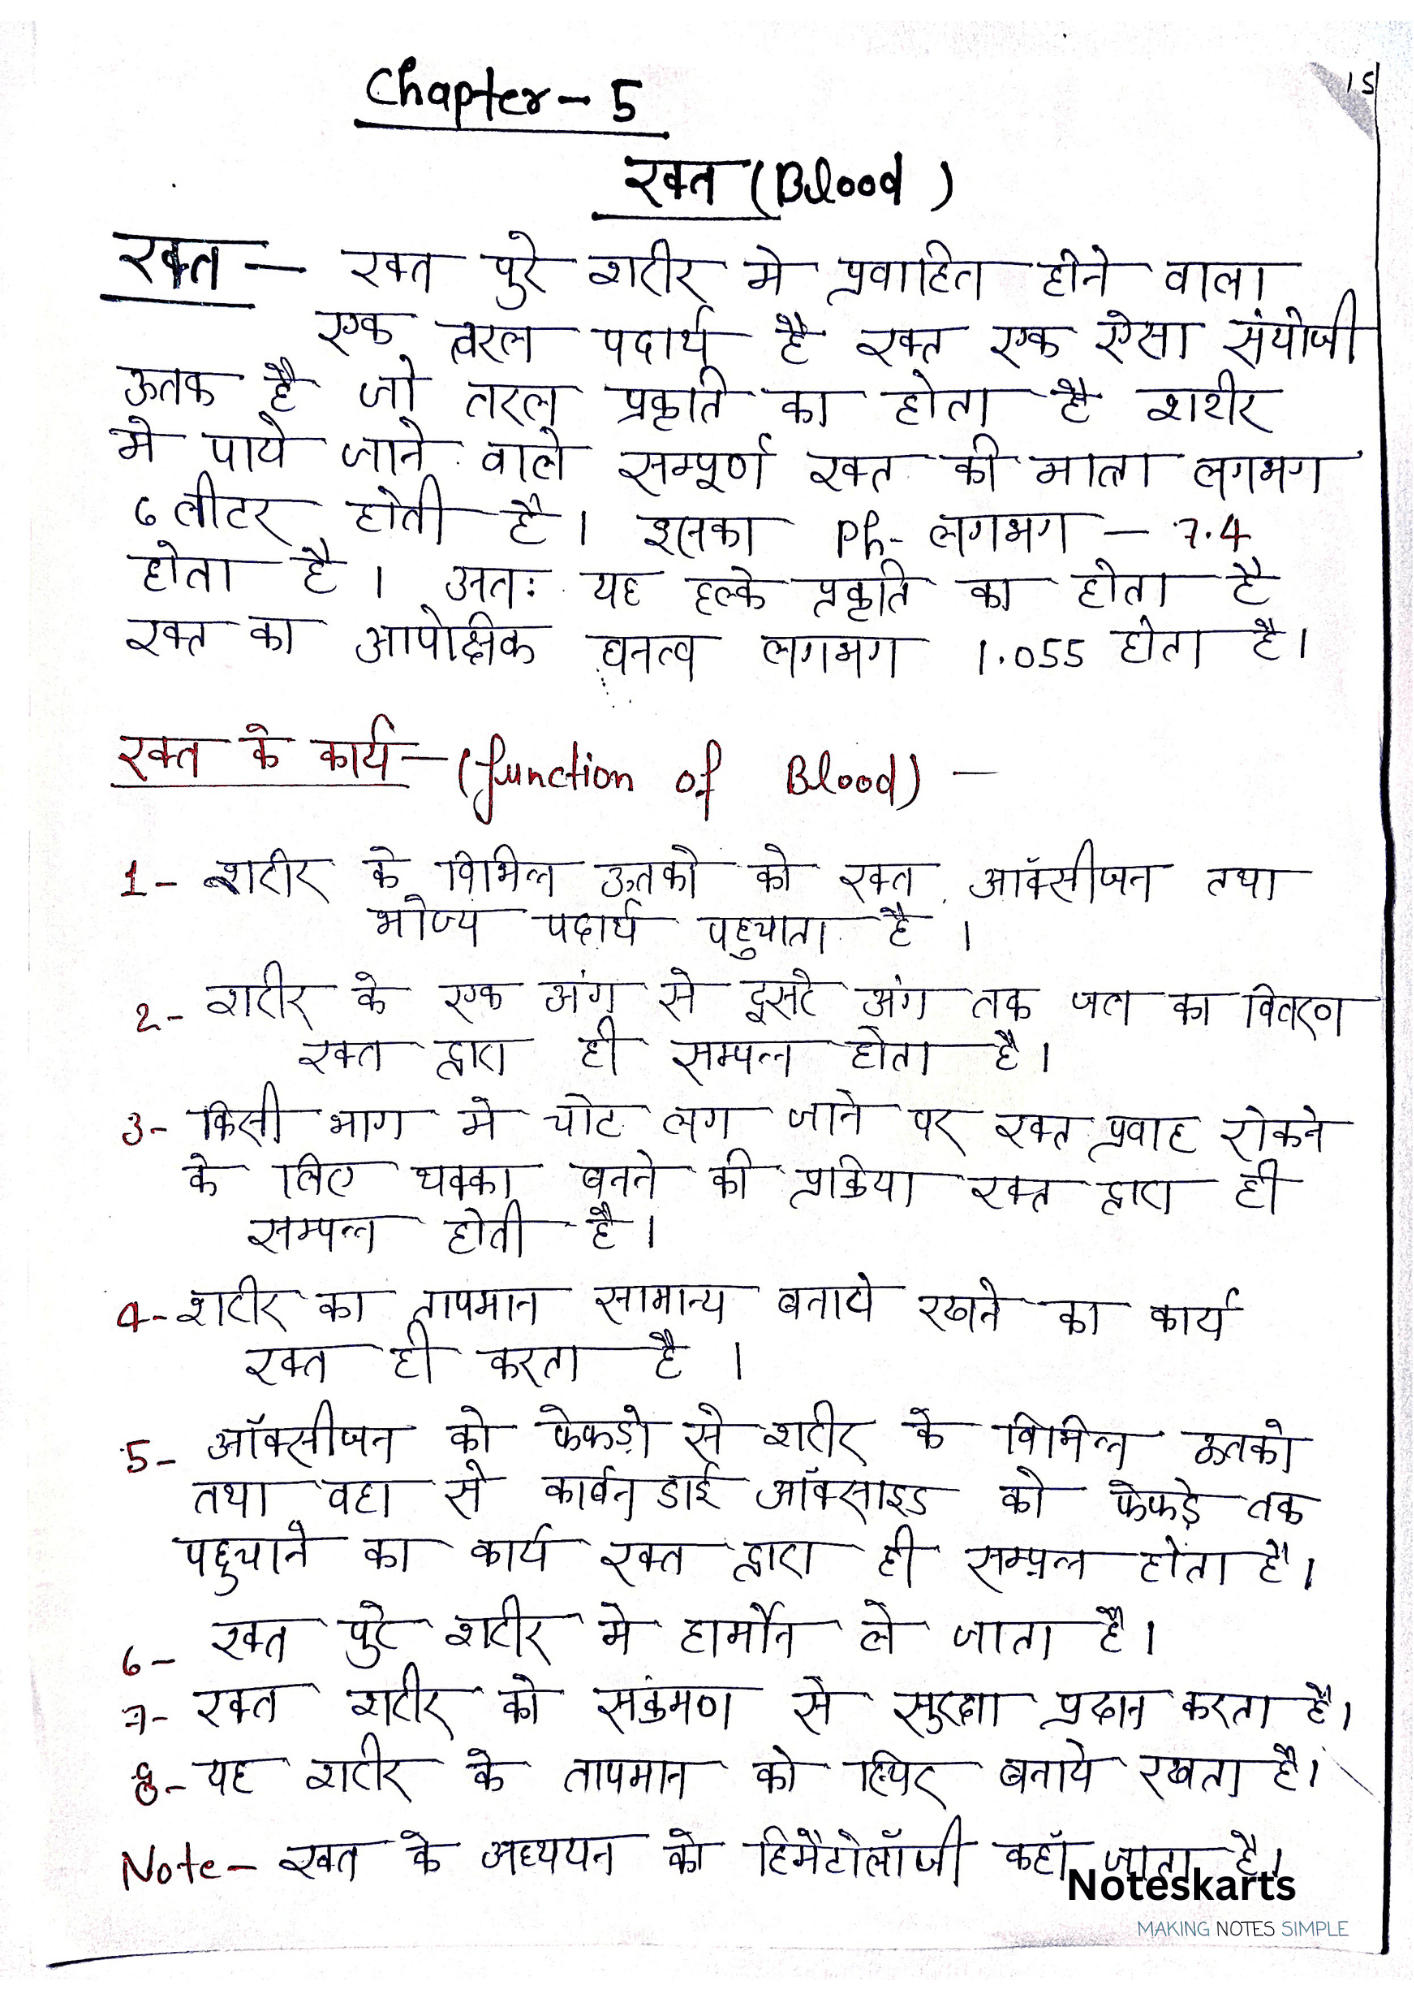 15
Chapter - 5
रक्त (Blood)
रक्त — रक्त पुरे शरीर मे प्रवाहित होने वाला
एक तरल पदार्थ है रक्त एक ऐसा संयोजी
ऊतक है जो तरल प्रकृति का होता है शरीर
मे पाये जाने वाले सम्पूर्ण रक्त की मात्रा लगभग
6 लीटर होती है। इसका Ph- लगभग — 7.4
होता है। अतः यह हल्के प्रकृति का होता है
रक्त का आपेक्षिक घनत्व लगभग 1.055 होता है।
रक्त के कार्य — (function of Blood) —
1- शरीर के विभिन्न ऊतको को रक्त ऑक्सीजन तथा
भोज्य पदार्थ पहुचाता है।
2- शरीर के एक अंग से दूसरे अंग तक जल का वितरण
रक्त द्वारा ही सम्पन्न होता है।
3- किसी भाग मे चोट लग जाने पर रक्त प्रवाह रोकने
के लिए थक्का बनने की प्रक्रिया रक्त द्वारा ही
सम्पन्न होती है।
4- शरीर का तापमान सामान्य बनाये रखने का कार्य
रक्त ही करता है।
5- ऑक्सीजन को फेफड़ो से शरीर के विभिन्न ऊतको
तथा वहा से कार्बन डाई ऑक्साइड को फेफड़े तक
पहुचाने का कार्य रक्त द्वारा ही सम्पन्न होता है।
6- रक्त पुरे शरीर मे हार्मोन ले जाता है।
7- रक्त शरीर को सक्रंमण से सुरक्षा प्रदान करता है।
8- यह शरीर के तापमान को स्थिर बनाये रखता है।
Note- रक्त के अध्ययन को हिमैटोलॉजी कहाँ जाता है।
Noteskarts
MAKING NOTES SIMPLE